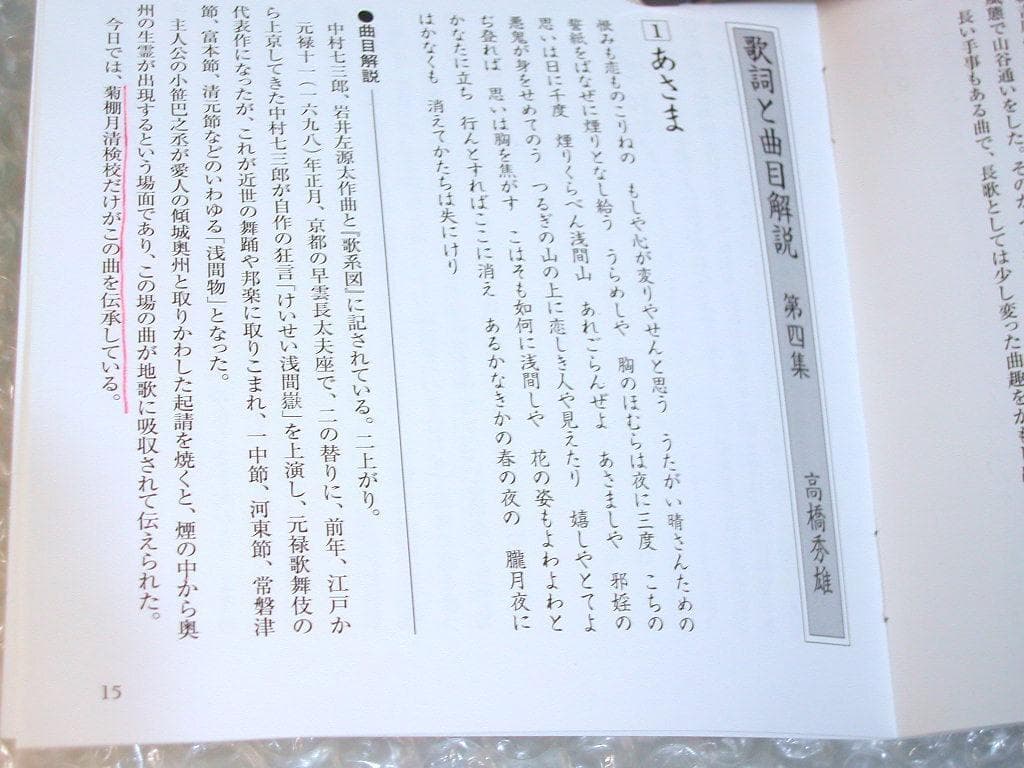 長い手事もある曲で、長歌としては少し変った曲趣を
風態で山谷通いをした。その
歌詞と曲目解説　第四集　高橋秀雄
1 あさま
恨みも恋ものこりねの　もしや心が変りやせんと思う　うたがい晴さんための
誓紙をばなぜに煙りとなし給う　うらめしや　胸のほむらは夜に三度　こちの
思いは日に千度　煙りくらべん浅間山　あれごらんぜよ　あさましや　邪婬の
悪鬼が身をせめてのう　つるぎの山の上に恋しき人や見えたり　嬉しやとてよ
ぢ登れば　思いは胸を焦がす　こはそも如何に浅間しや　花の姿もよわよわと
かなたに立ち　行んとすればここに消え　あるかなきかの春の夜の　朧月夜に
はかなくも　消えてかたちは失にけり
●曲目解説
中村七三郎、岩井左源太作曲と『歌系図』に記されている。二上がり。
元禄十一(一六九八)年正月、京都の早雲長太夫座で、二の替りに、前年、江戸か
ら上京してきた中村七三郎が自作の狂言「けいせい浅間嶽」を上演し、元禄歌舞伎の
代表作になったが、これが近世の舞踊や邦楽に取りこまれ、一中節、河東節、常磐津
節、富本節、清元節などのいわゆる「浅間物」となった。
主人公の小笹巴之丞が愛人の傾城奥州と取りかわした起請を焼くと、煙の中から奥
州の生霊が出現するという場面であり、この場の曲が地歌に吸収されて伝えられた。
今日では、菊棚月清検校だけがこの曲を伝承している。
15